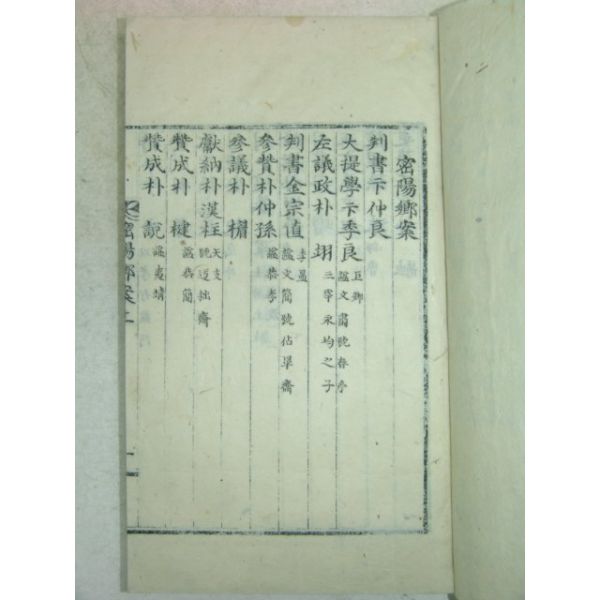 密陽鄉案
判書卞仲良
大提學卞季良 巨卿 謚文肅號春亭
左議政朴 翊 三宰永均之子
判書金宗直 季昷 謚文簡號佔畢齋
參贊朴仲孫 謚恭孝
參議朴 楣
獻納朴漢柱 天支 號迂拙齋
贊成朴 楗 謚恭簡
贊成朴 說 謚夷靖
密陽鄉案
一